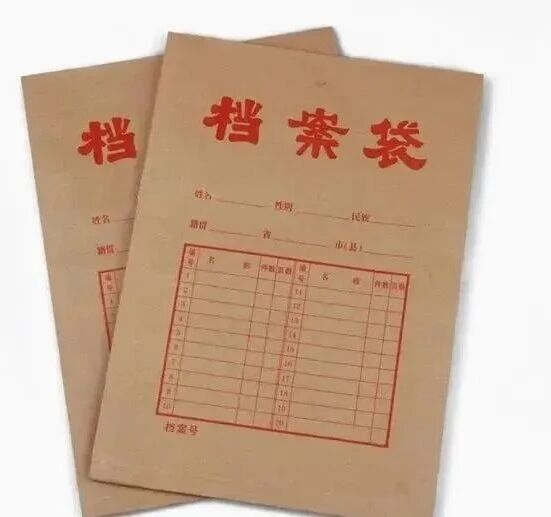 档案袋
姓名 性别 民族
籍贯 省 市(县)
编号 名称 件数 页数 编号 名称 件数 页数
1 11
2 12
3 13
4 14
5 15
6 16
7 17
8 18
9 19
10 20
档案号
档
姓名
籍贯
编号